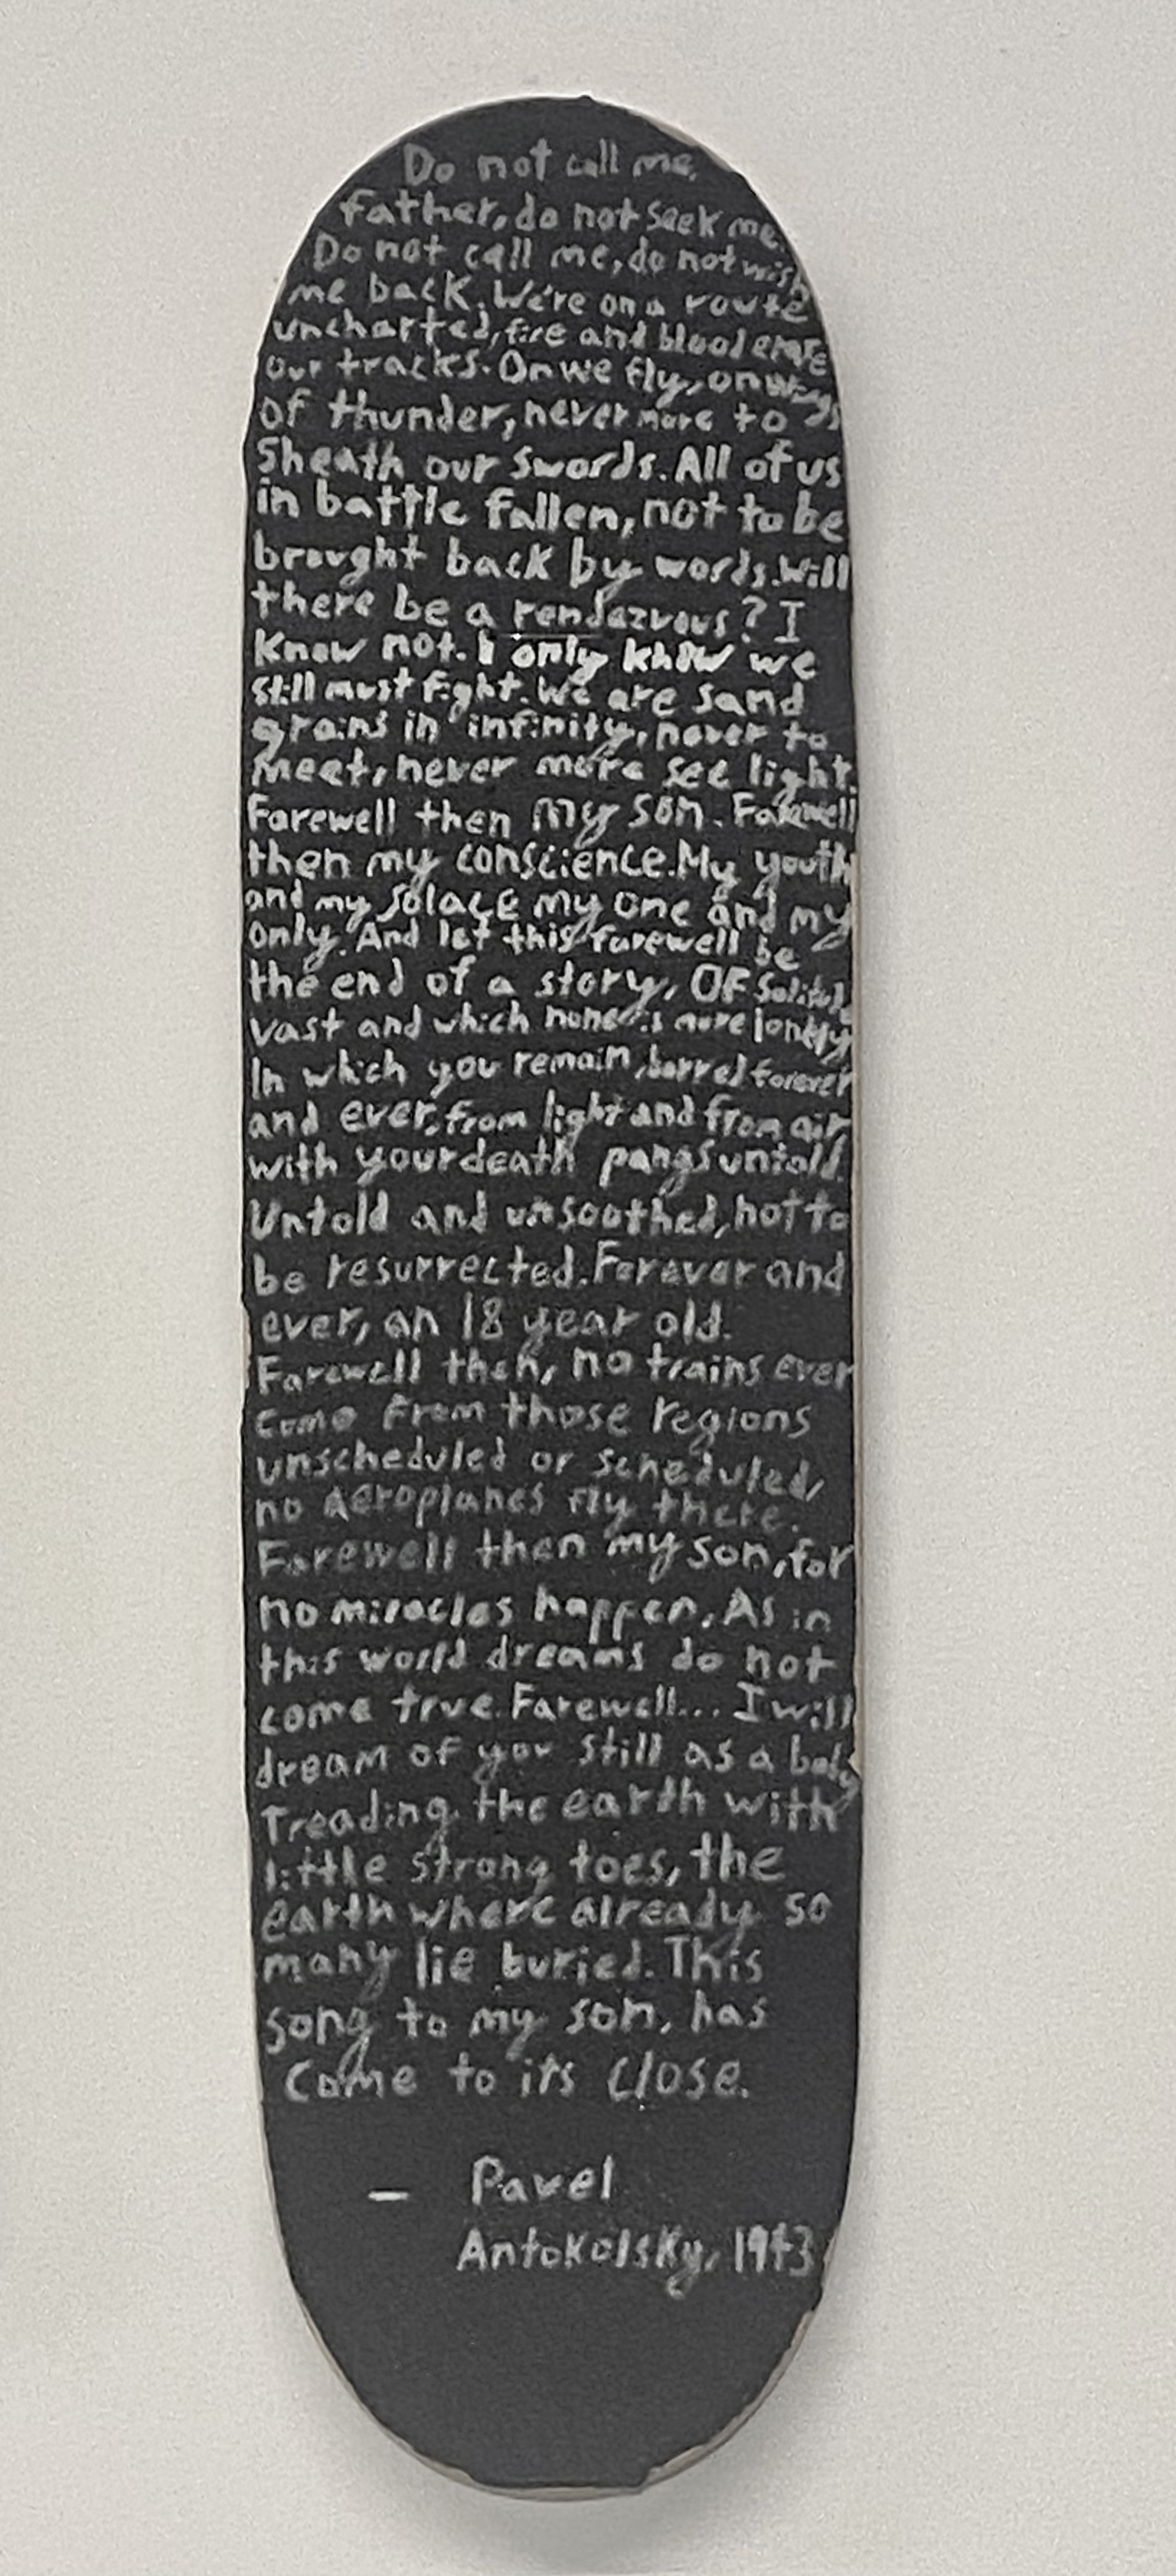 Do not call me,
father, do not seek me.
Do not call me, do not wish
me back. We're on a route
uncharted, fire and blood erase
our tracks. On we fly, on wings
of thunder, never more to
Sheath our swords. All of us
in battle fallen, not to be
brought back by words. Will
there be a rendezvous? I
know not. I only know we
still must fight. We are sand
grains in infinity, never to
meet, never more see light.
Farewell then my son. Farewell
then my conscience. My youth
and my solace my one and my
only. And let this farewell be
the end of a story, OF solitude
vast and which none is more lonely
In which you remain, barred forever
and ever, from light and from air
with your death pangs untold.
Untold and unsoothed, not to
be resurrected. Forever and
ever, an 18 year old.
Farewell then, no trains ever
come From those regions
unscheduled or scheduled,
no aeroplanes fly there.
Farewell then my son, for
no miracles happen. As in
this world dreams do not
come true. Farewell... I will
dream of you still as a baby
Treading the earth with
little strong toes, the
earth where already so
many lie buried. This
song to my son, has
Come to its close.
— Pavel
Antokolsky, 1943